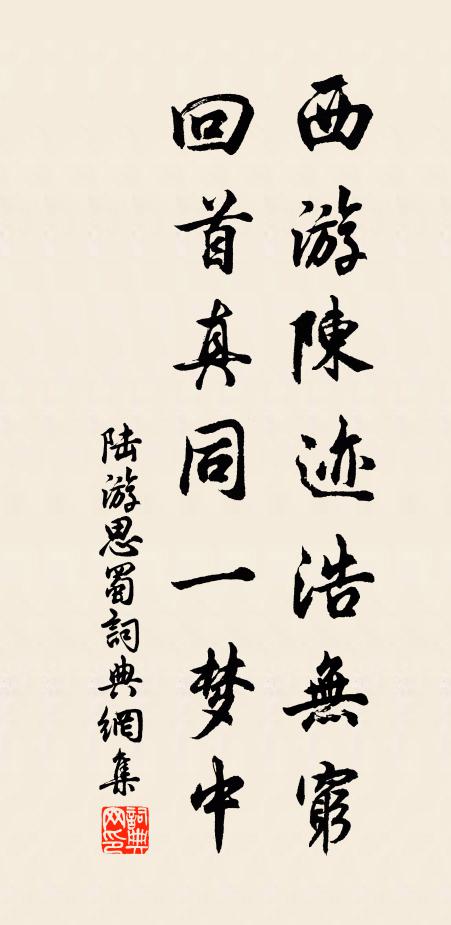 西游陳迹浩無窮
回首真同一梦中
陆游思蜀詞典網集
詞典网印